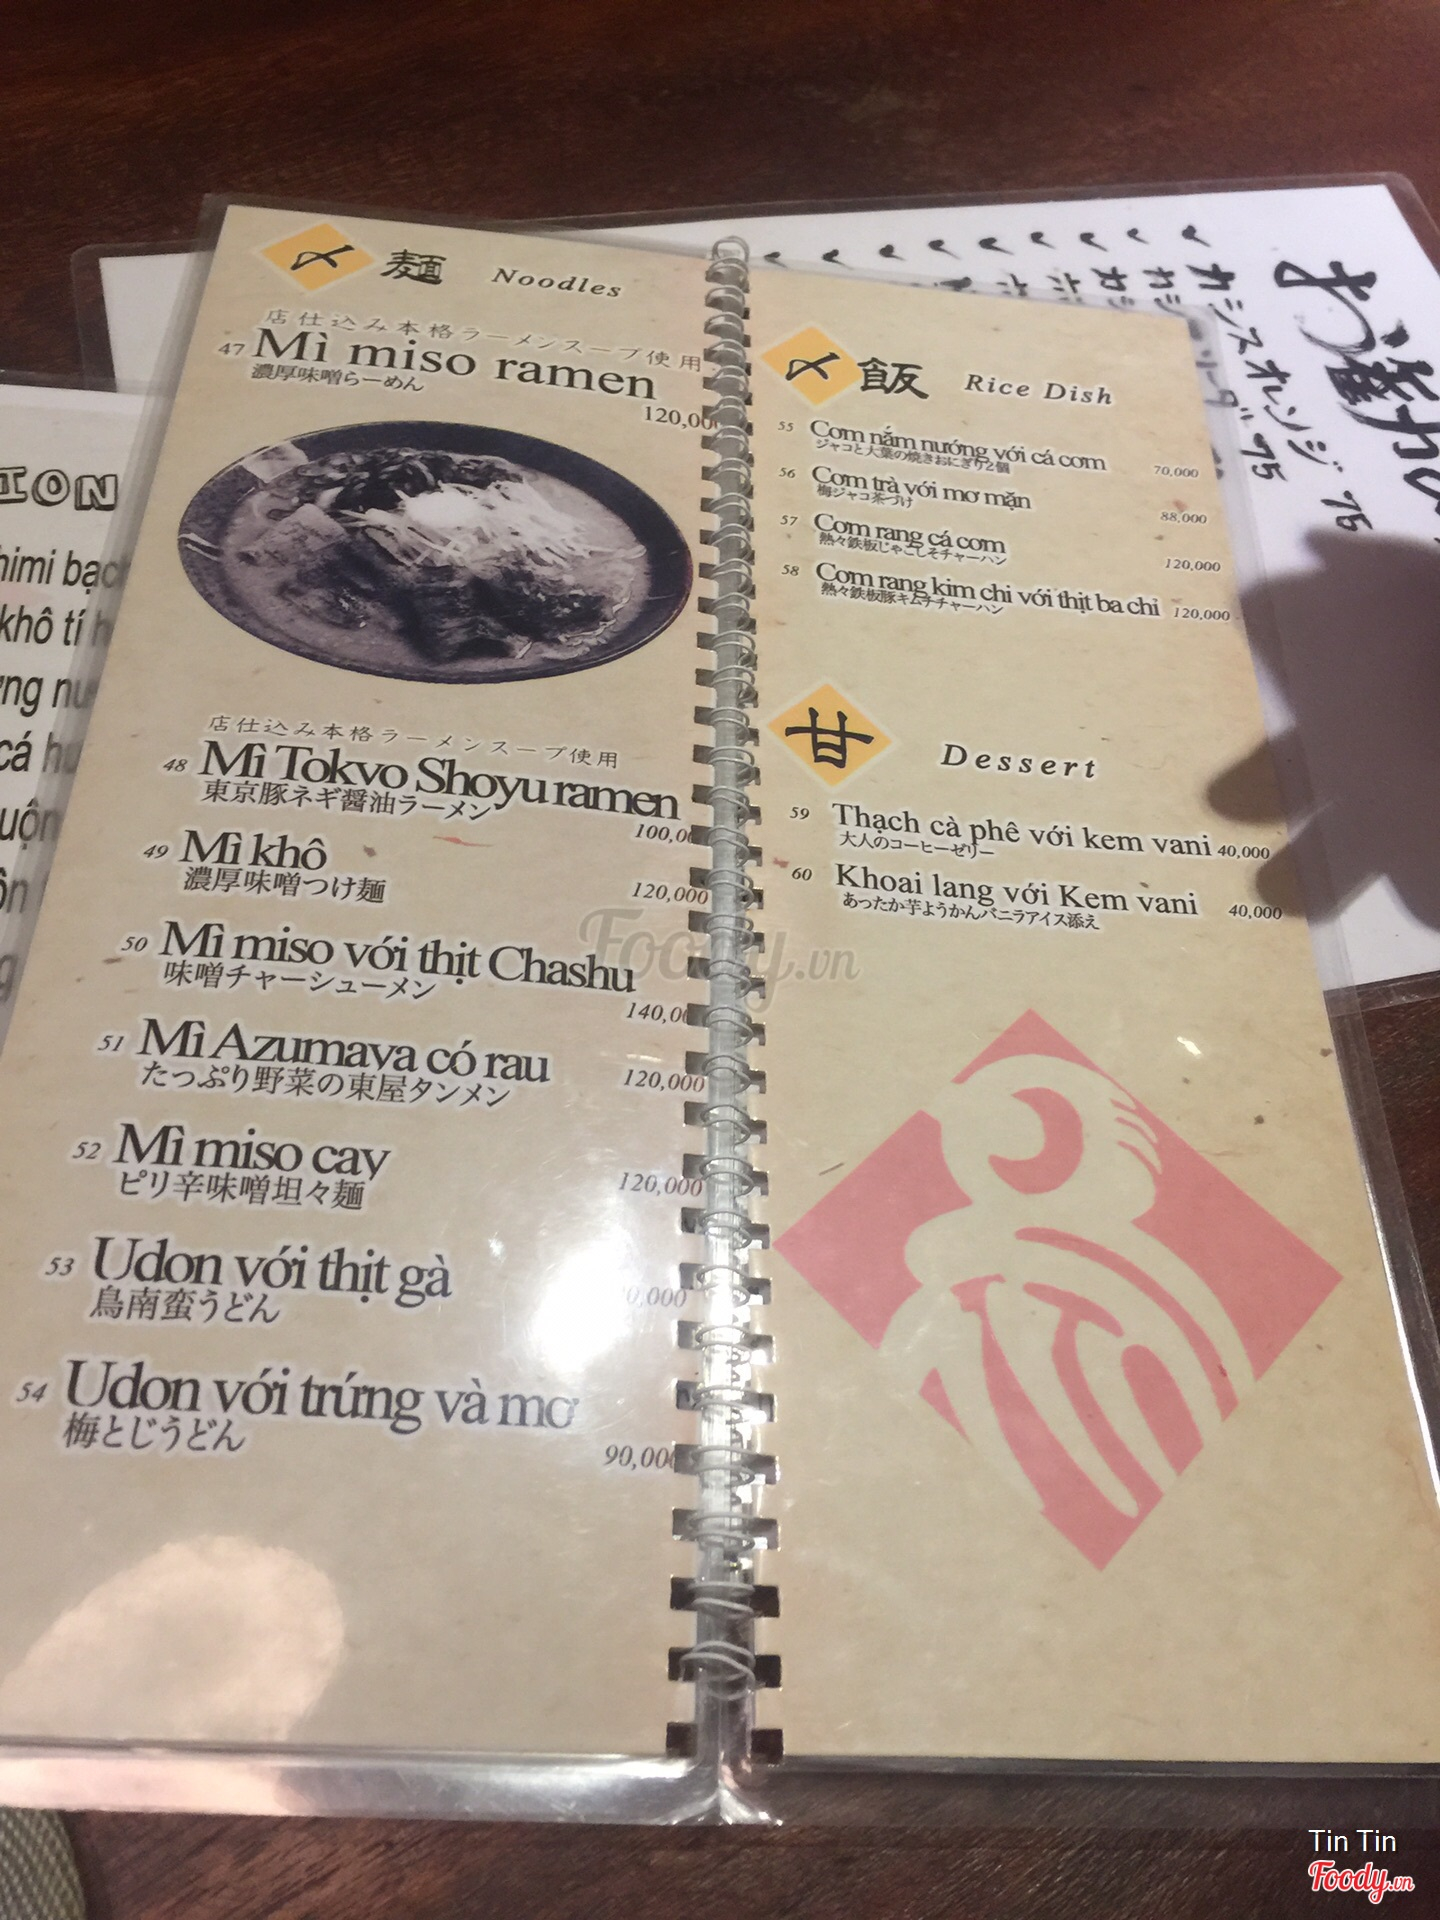 〆 麺 Noodles
店仕込み本格ラーメンスープ使用
47 Mì miso ramen
濃厚味噌らーめん
120,00
店仕込み本格ラーメンスープ使用
48 Mì Tokyo Shoyu ramen
東京豚ネギ醤油ラーメン
100,0
49 Mì khô
濃厚味噌つけ麺
120,000
50 Mì miso với thịt Chashu
味噌チャーシューメン
140,0
51 Mì Azumaya có rau
たっぷり野菜の東屋タンメン
120,000
52 Mì miso cay
ピリ辛味噌坦々麺
120,000
53 Udon với thịt gà
鳥南蛮うどん
0,000
54 Udon với trứng và mơ
梅とじうどん
90,000
〆 飯 Rice Dish
55 Cơm nắm nướng với cá cơm
ジャコと大葉の焼きおにぎり2個
70,000
56 Cơm trà với mơ mặn
梅ジャコ茶づけ
88,000
57 Cơm rang cá cơm
熱々鉄板じゃこしそチャーハン
120,000
58 Cơm rang kim chi với thịt ba chỉ 120,000
熱々鉄板豚キムチチャーハン
甘 Dessert
59 Thạch cà phê với kem vani 40,000
大人のコーヒーゼリー
60 Khoai lang với Kem vani 40,000
あったか芋ようかんバニラアイス添え
ION
himi bạc
khô tí h
cá hu
カシスオレンジ 75
75
Foody.vn
Tin Tin
Foody.vn